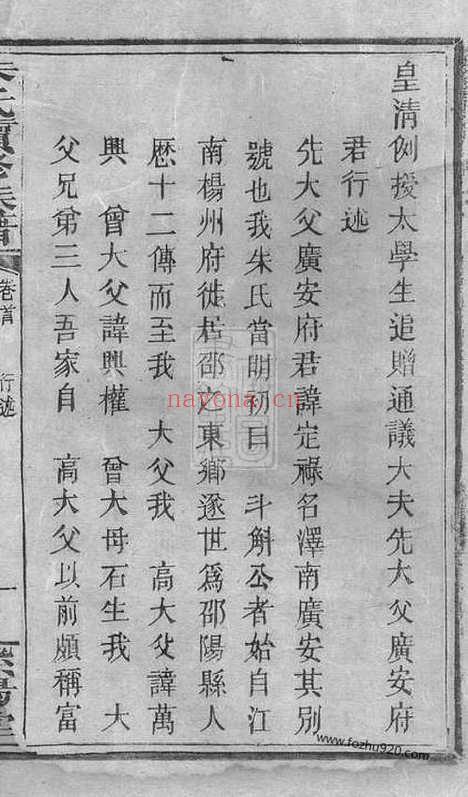 皇清例授太學生追贈通議大夫先大父廣安府
君行述
先大父廣安府君諱定祿名澤南廣安其別
號也我朱氏當明初曰 斗斛公者始自江
南楊州府徙居邵之東鄉遂世爲邵陽縣人
歷十二傳而至我 大父我 高大父諱萬
興 曾大父諱興權 曾大母石生我 大
父兄弟三人吾家自 高大父以前頗稱富
朱氏續修族譜
卷首 行述
一
nayona.cn
www.fozhu920.com